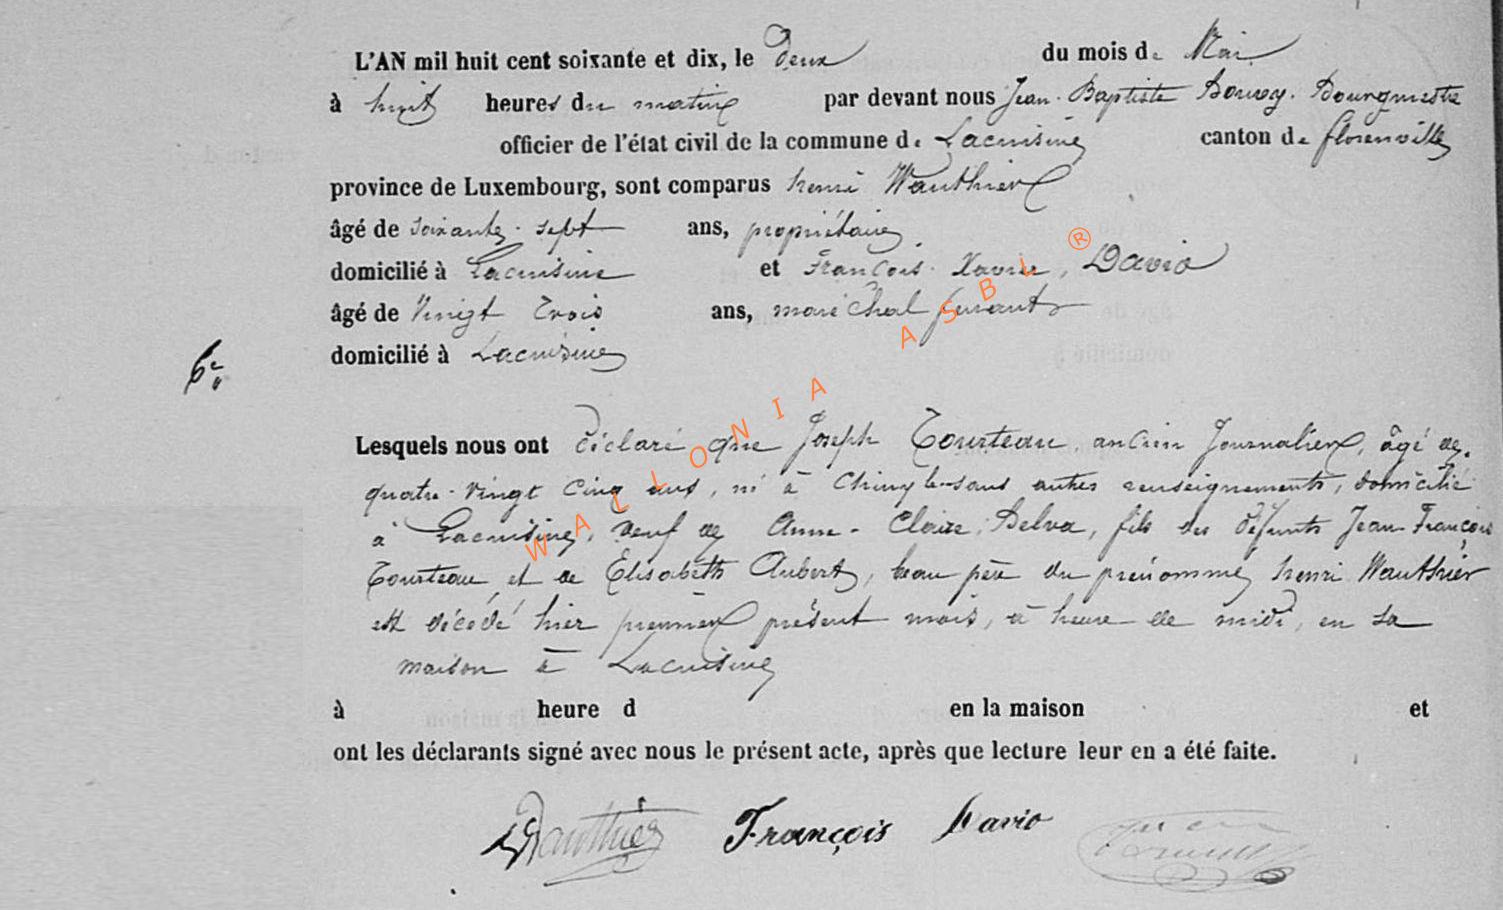 L'AN mil huit cent soixante et dix, le Deux du mois de Mai
à huit heures du matin par devant nous Jean-Baptiste Bourgmestre
officier de l'état civil de la commune de Lacuisine canton de florenville
province de Luxembourg, sont comparus henri Wauthier
âgé de soixante-sept ans, propriétaire
domicilié à Lacuisine et François-Xavier, Davio
âgé de Vingt Trois ans, maréchal ferrant
domicilié à Lacuisine
6e
Lesquels nous ont déclaré que Joseph Tourteau, ancien Journalier, âgé de
quatre-vingt cinq ans, né à Chiny sans autres renseignements, domicilié
à Lacuisine, veuf de Anne-Claire Delva, fils des défunts Jean-François
Tourteau, et de Elisabeth Aubert, beau père du prénommé henri Wauthier
est décédé hier premier présent mois, à heure de midi, en sa
maison à Lacuisine
à heure d en la maison et
ont les déclarants signé avec nous le présent acte, après que lecture leur en a été faite.
Wauthier François Davio
WALLONIA ASBL ®